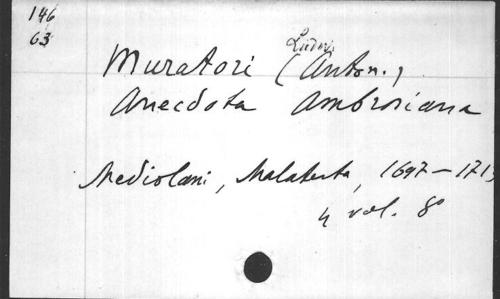 146
63
Muratori (Ludov. Anton.)
Anecdota Ambrosiana
Mediolani, Malatesta, 1697-1713
4 vol. 8°